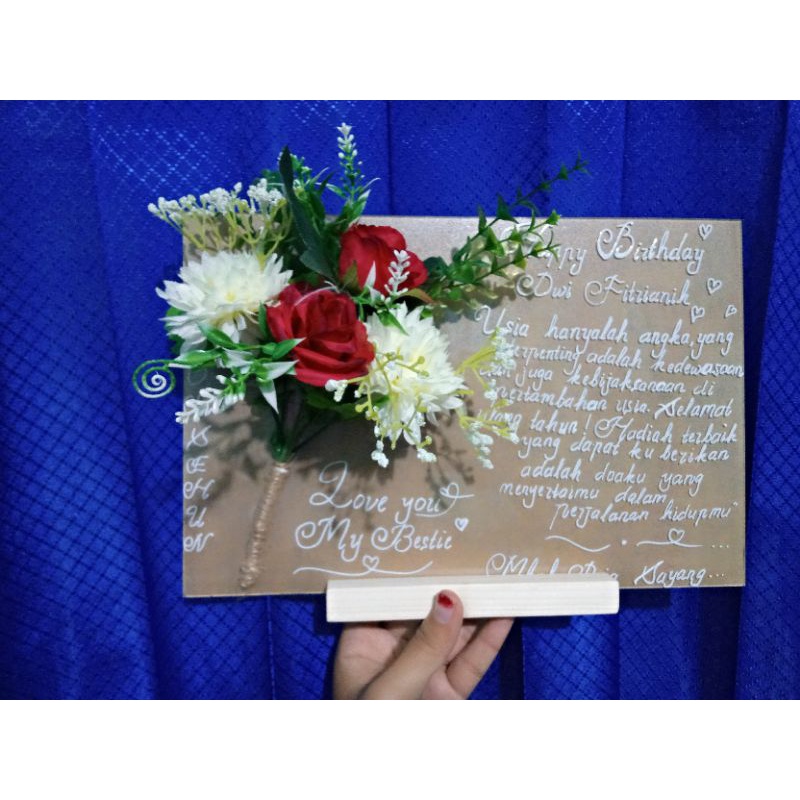 Happy Birthday
Dwi Fitrianik
Usia hanyalah angka, yang
terpenting adalah kedewasaan
dan juga kebijaksanaan di
pertambahan usia. Selamat
ulang tahun! Hadiah terbaik
yang dapat ku berikan
adalah doaku yang
menyertaimu dalam
perjalanan hidupmu"
Sayang...
Love you
My Bestie
S
E
H
U
N